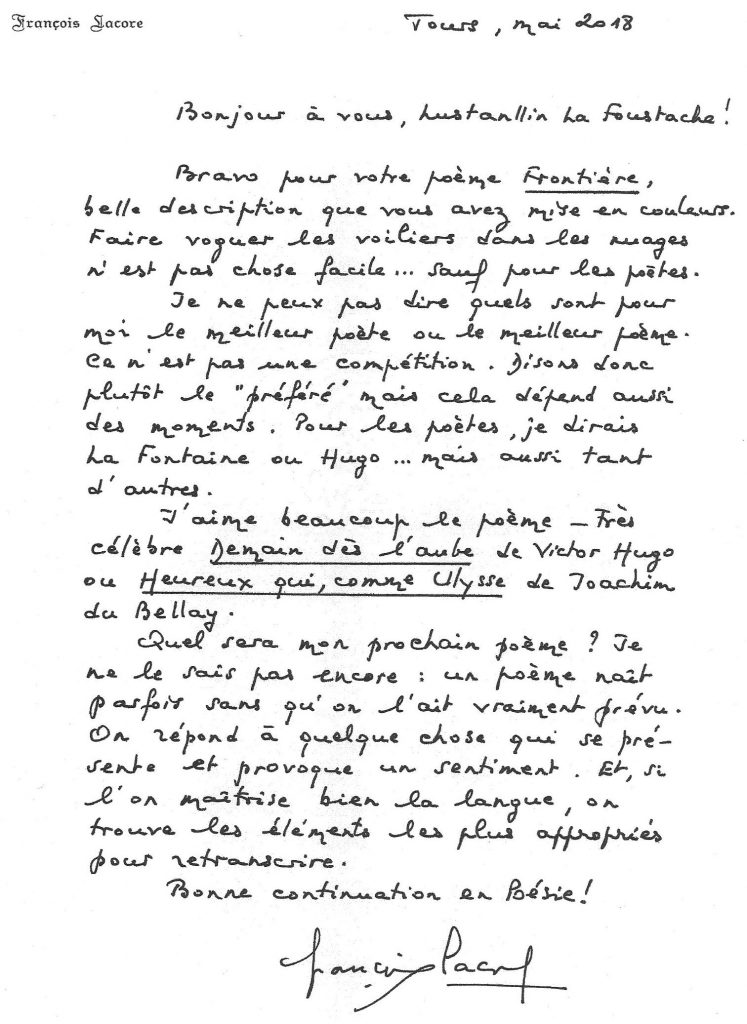 François Lacore
Tours, mai 2018
Bonjour à vous, Lustanllin La Foustache!
Bravo pour votre poème Frontière,
belle description que vous avez mise en couleurs.
Faire voguer les voiliers dans les nuages
n'est pas chose facile... sauf pour les poètes.
Je ne peux pas dire quels sont pour
moi le meilleur poète ou le meilleur poème.
Ce n'est pas une compétition. Disons donc
plutôt le "préféré" mais cela dépend aussi
des moments. Pour les poètes, je dirais
La Fontaine ou Hugo... mais aussi tant
d'autres.
J'aime beaucoup le poème – Très
célèbre Demain dès l'aube de Victor Hugo
ou Heureux qui, comme Ulysse de Joachim
du Bellay.
Quel sera mon prochain poème? Je
ne le sais pas encore : un poème naît
parfois sans qu'on l'ait vraiment prévu.
On répond à quelque chose qui se pré-
sente et provoque un sentiment. Et, si
l'on maîtrise bien la langue, on
trouve les éléments les plus appropriés
pour retranscrire.
Bonne continuation en Poésie!
François Lacore